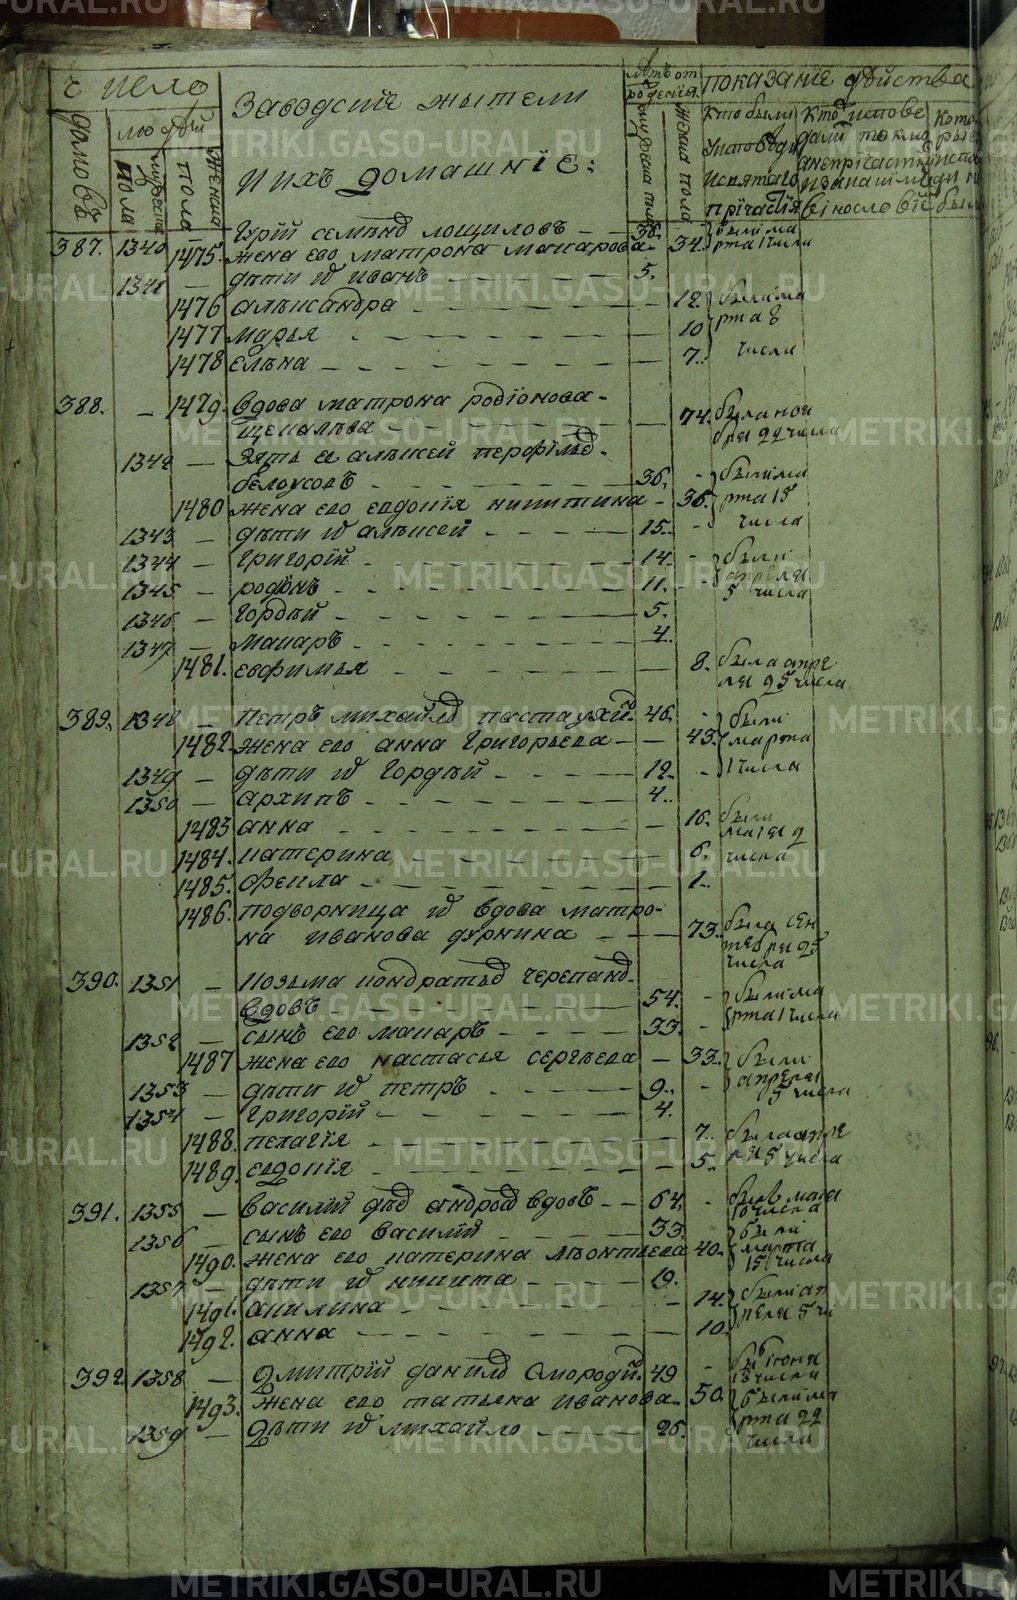 число
людей
домовъ
мужеска пола
женска пола
Заводскiе жытели
и ихъ домашнiе:
лѣтъ от
рождения
мужеска пола
женска пола
показанiе действа
Кто были
у исповеди
и святаго
причастiя
Кто исповедали токмо
а не причастились
и за каким
винословiем
387. 1340 Гурiй семенов лощиловъ — 36.
1475. жена его матрона макарова — 34. были марта 1 числа
1341 — дѣти их иванъ — 5.
1476 алѣксандра — 12. были марта 8 числа
1477 марья — 10
1478 елѣна — 7.
388. — 1479. вдова матрона родiонова
щепалѣва — 74. была ноября 22 числа
1342 — Зять ее алѣксей перфильев
белоусовъ — 36. были марта 15 числа
1480 жена его евдокiя никитина — 36.
1343 — дѣти их алѣксей — 15.
1344 — григорiй — 14. были апреля 5 числа
1345 — родiонъ — 11.
1346 — гордѣй — 5.
1347 — макаръ — 4.
1481. евфимья — 8. была апреля 25 числа
389. 1348 — Петръ михайлов пастухов — 46. были марта 1 числа
1482. жена его анна григорьева — 43.
1349 — дѣти их гордѣй — 12.
1350 — архипъ — 4.
1483 анна — 16. были маия 9 числа
1484. катерина — 6.
1485. фекла — 1.
1486. подворница их вдова матро-
на иванова дурнина — 73. была сентебря 25 числа
390. 1351 — козьма кондратьев черепанов
вдовъ — 54. были марта 1 числа
1352 — сынъ его макаръ — 33.
1487 жена его настасья сергѣева — 33. были апреля 5 числа
1353 — дѣти их петръ — 9.
1354 — григорiй — 4.
1488. пелагiя — 7. были апреля 5 числа
1489. евдокiя — 5.
391. 1355 — василiй андронов вдовъ — 64. был маия 10 числа
1356 — сынъ его василiй — 33. были марта 15 числа
1490. жена его катерина лѣонтьева 40.
1357 — дѣти их никита — 19.
1491. акилина — 14. были апреля 5 чи
1492. анна — 10.
392. 1358 — Дмитрiй данилов смородин. 49 был июня 18 числа
1493. жена его татьяна иванова — 50. были марта 22 числа
1359 — дѣти их михайло — 26.
METRIKI.GASO-URAL.RU